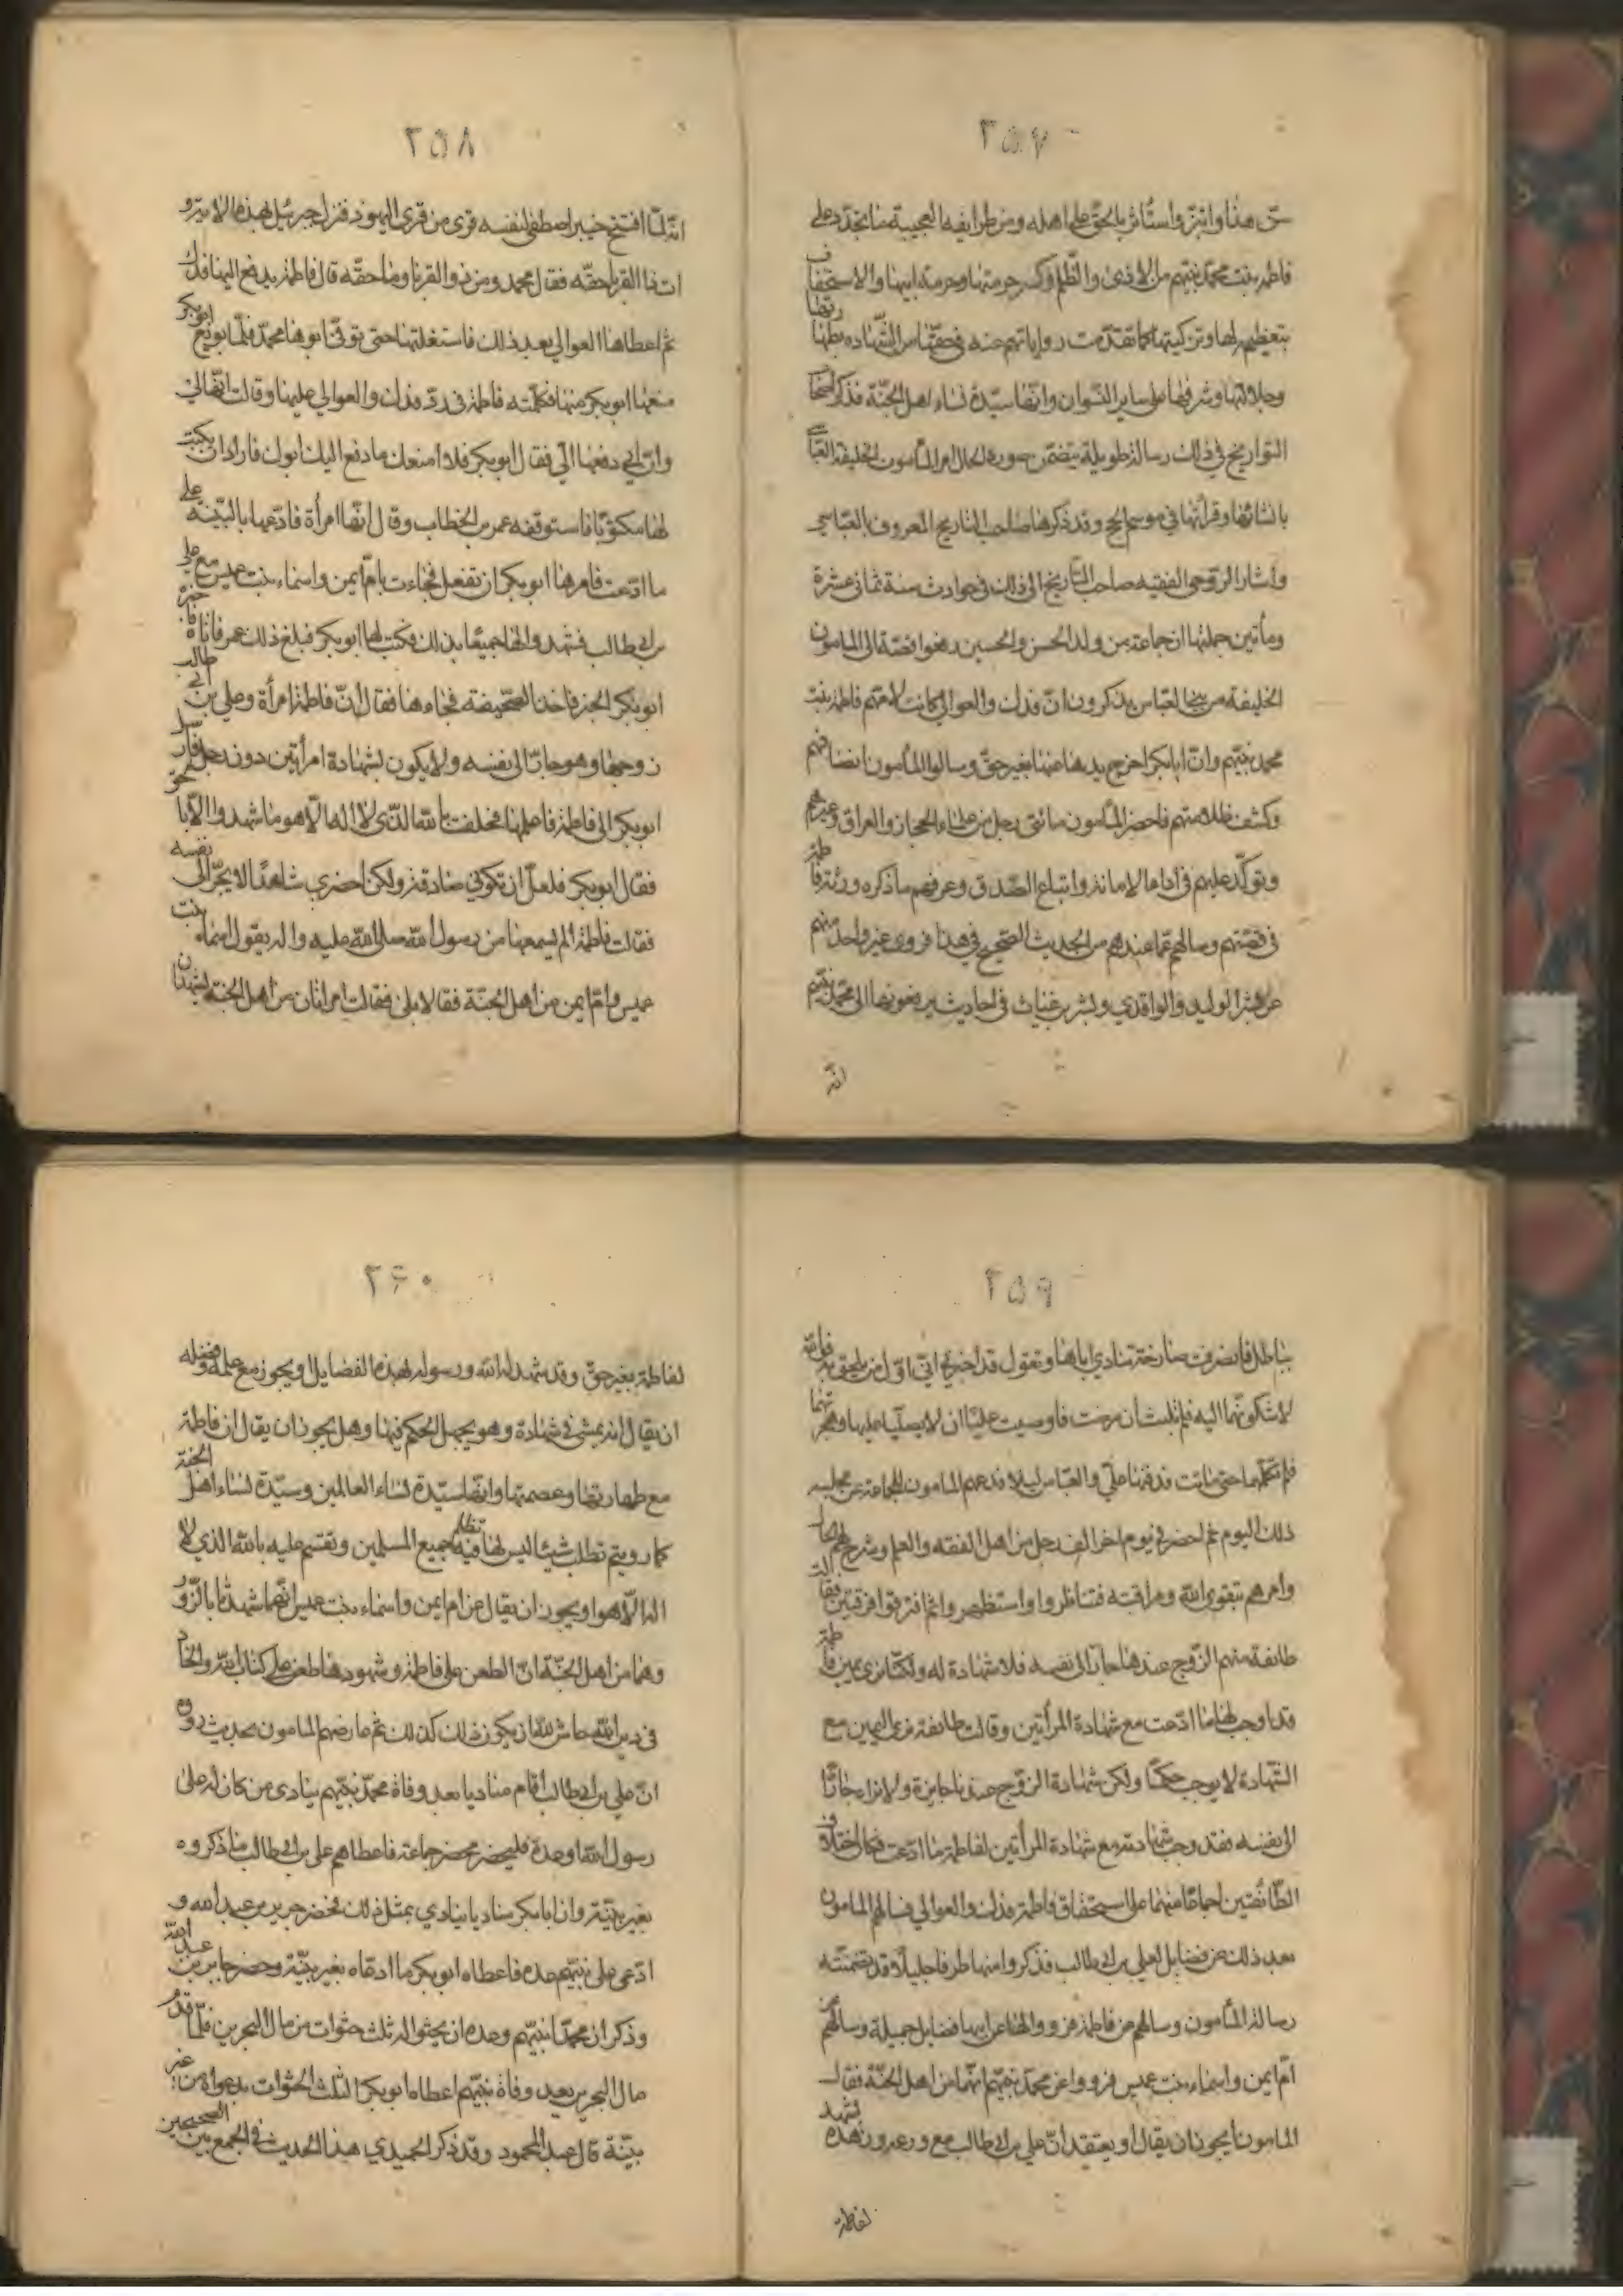 ٢٥٧
سن هذا وابتز واستأثر بالحق على اهله ومن طرايفه العجيبة ما تجدد على
فاطمه بنت محمد نبيهم من الاذى والظلم وكسر حرمتها وحرمة ابيها والاستخفاف
بتعظيمه لها وتزكيتها كما تقدمت رواياتهم عنه في حقها من الشهاده بطهارتها
وجلالتها وشرفها على ساير النسوان وانها سيدة نساء اهل الجنة فذكر اصحاب
التواريخ في ذلك رسالة طويلة يتضمن صورة الحال امر المأمون الخليفة العباسي
بانشائها وقرأتها في موسم الحج وقد ذكرها صاحب التاريخ المعروف بالعباسي
وأشار الروحي الفقيه صاحب التاريخ الى ذلك في حوادث سنة ثماني عشرة
ومأتين جملتها ان جماعة من ولد الحسن والحسين رفعوا قصة الى المامون
الخليفة من بني العباس يذكرون ان فدك والعوالي كانت لامهم فاطمة بنت
محمد نبيهم وان ابا بكر اخرج يدها عنها بغير حق وسالوا المأمون انصافهم
وكشف ظلامتهم فاحضر المأمون مائتي رجل من علماء الحجاز والعراق وغيرهم
وتوكد عليهم في اداء الامانة واتباع الصدق وعرفهم ما ذكره ورثة فاطمة
في قصتهم وسالهم عما عندهم من الحديث الصحيح في هذا فروى غير واحد منهم
عن بشر الوليد والواقدي وبشر بن غياث في احاديث يرفعونها الى محمد نبيهم
انه
٢٥٨
انه لما افتتح خيبر اصطفى لنفسه قرى من قرى اليهود فنزل جبرئيل بهذه الاية و
ات ذا القربى حقه فقال محمد ومن ذو القربى وما حقه قال فاطمة يدفع اليها فدك
ثم اعطاها العوالي بعد ذلك فاستغلتها حتى توفي ابوها محمد فلما بويع ابو بكر
منعها ابو بكر منها فكلمته فاطمة في رد فدك والعوالي عليها وقالت انها لي
وان ابي دفعها الي فقال ابو بكر فلا امنعك ما دفع اليك ابوك فاراد ان يكتب
لها مكتوبا فاستوقفه عمر بن الخطاب وقال انها امرأة فادعها بالبينة على
ما ادعت فامرها ابو بكر ان تفعل فجاءت بام ايمن واسماء بنت عميس مع علي
بن ابي طالب فشهدوا لها جميعا بذلك فكتب لها ابو بكر فبلغ ذلك عمر فاتاه فاخبره
ابو بكر الخبر فاخذ الصحيفة فمحاها فقال ان فاطمة امرأة وعلي بن ابي طالب
زوجها وهو جار الى نفسه ولا يكون بشهادة امرأتين دون رجل فارسل
ابو بكر الى فاطمة فاعلمها فحلفت بالله الذي لا اله الا هو ما شهدوا الا بالحق
فقال ابو بكر فلعل ان تكوني صادقة ولكن احضري شاهدا لا يجر الى نفسه
فقالت فاطمة الم تسمعها من رسول الله صلى الله عليه واله يقول اسماء بنت
عميس وام ايمن من اهل الجنة فقالا بلى فقالت امرأتان من اهل الجنة تشهدان
٢٥٩
بباطل فانصرفت صارخة تنادي اباها وتقول قد اخبرني ابي اني اول من يلحق به فوالله
لاشكونهما اليه فلم تلبث ان مرضت فاوصت عليا ان لا يصليا عليها وهجرتهما
فلم تكلمهما حتى ماتت فدفنها علي والعباس ليلا فدفعهم المامون الجماعة عن مجلسه
ذلك اليوم ثم احضر في يوم اخر الف رجل من اهل الفقه والعلم وشرح لهم الحال
وامرهم بتقوى الله ومراقبته فتناظروا واستظهروا ثم افترقوا فرقتين فقالت
طائفة منهم الزوج عندنا جار الى نفسه فلا شهادة له ولكنا نرى يمين فاطمة
قد اوجب لها ما ادعت مع شهادة المرأتين وقالت طائفة نرى اليمين مع
الشهادة لا يوجب حكما ولكن شهادة الزوج عندنا جايزة ولا نراه جارا
الى نفسه فقد وجب شهادته مع شهادة المرأتين لفاطمة ما ادعت فكان اختلاف
الطائفتين اجماعا منهما على استحقاق فاطمة فدك والعوالي فسالهم المامون
بعد ذلك عن فضايل لعلي بن ابي طالب فذكروا منها طرفا جليلا قد تضمنته
رسالة المأمون وسالهم عن فاطمة فرووا لها عن ابيها فضايل جميلة وسالهم عن
ام ايمن واسماء بنت عميس فرووا عن محمد نبيهم انهما من اهل الجنة فقال
المامون أيجوز ان يقال او يعتقد ان علي بن ابي طالب مع ورعه وزهده يشهد
لفاطمة
٢۶٠
لفاطمة بغير حق وقد شهد له الله ورسوله بهذه الفضايل او يجوز مع علمه وفضله
ان يقال انه يمشي في شهادة وهو يجهل الحكم فيها وهل يجوز ان يقال ان فاطمة
مع طهارتها وعصمتها وانها سيدة نساء العالمين وسيدة نساء اهل الجنة
كما رويتم تطلب شيئا ليس لها تظلم فيه جميع المسلمين وتقسم عليه بالله الذي لا
اله الا هو او يجوز ان يقال عن ام ايمن واسماء بنت عميس انهما شهدتا بالزور
وهما من اهل الجنة ان الطعن على فاطمة وشهودها طعن على كتاب الله والحاد
في دين الله حاش لله ان يكون ذلك كذلك ثم عارضهم المامون بحديث رووه
ان علي بن ابي طالب أقام مناديا بعد وفاة محمد نبيهم ينادي من كان له على
رسول الله او عدة فليحضر فحضر جماعة فاعطاهم علي بن ابي طالب ما ذكروه
بغير بينة وان ابا بكر مناديا ينادي بمثل ذلك فحضر جرير بن عبد الله و
ادعى على نبيهم عدة فاعطاه ابو بكر ما ادعاه بغير بينة وحضر جابر بن عبد الله
وذكر ان محمدا نبيهم وعده ان يحثوا له ثلث حثوات من مال البحرين فلما قدم
مال البحرين بعد وفاة نبيهم اعطاه ابو بكر الثلث الحثوات بدعواه من غير
بينة قال عبد المحمود وقد ذكر الحميدي هذا الحديث في الجمع بين الصحيحين